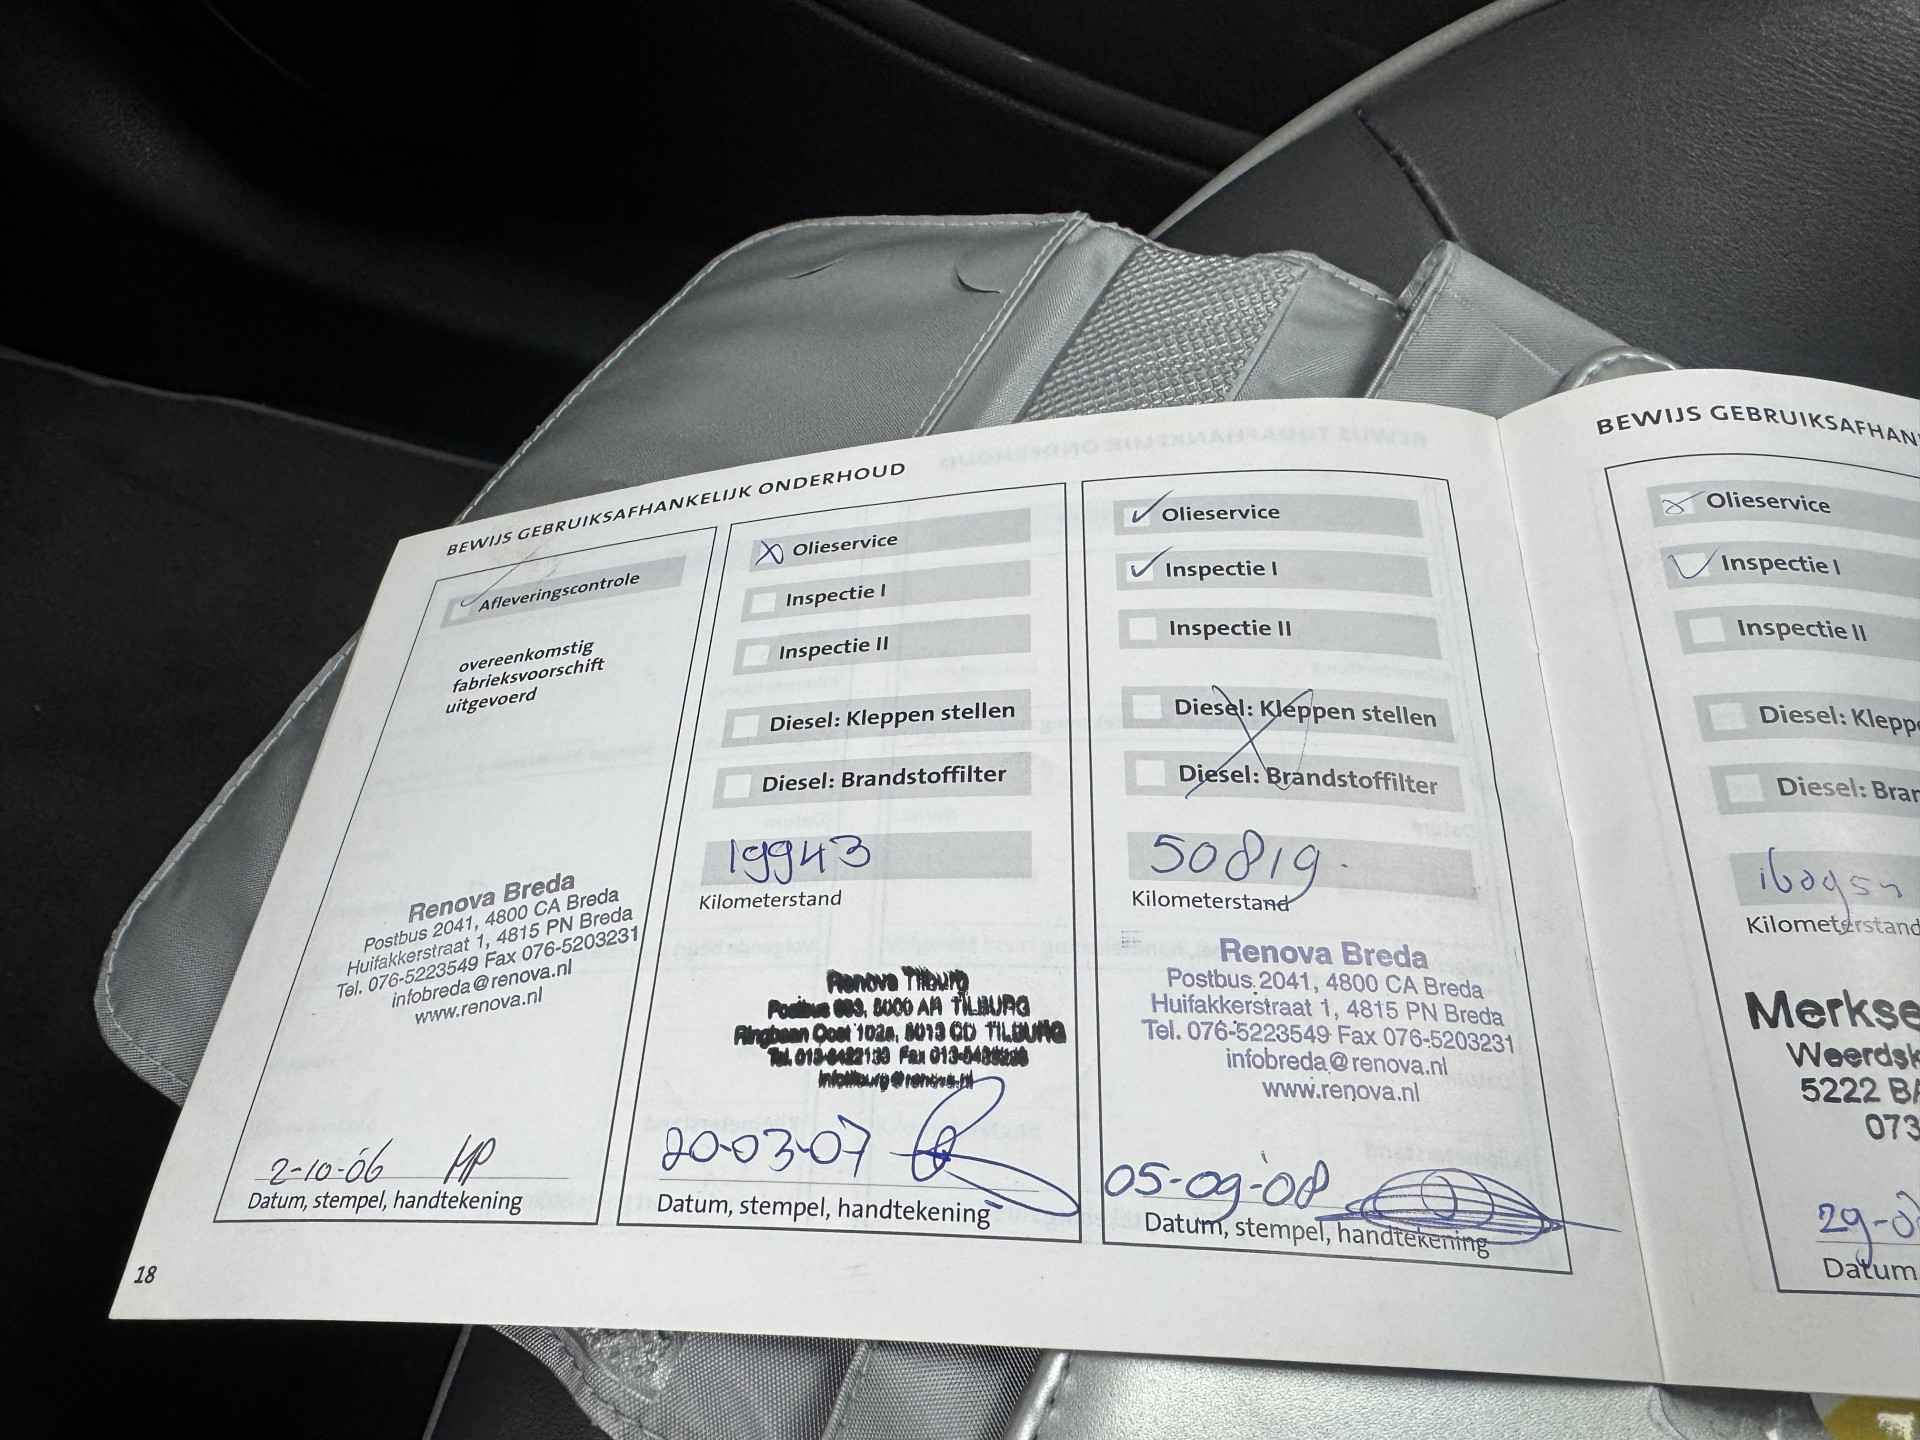 BEWIJS GEBRUIKSAFHANKELIJK ONDERHOUD
Afleveringscontrole
overeenkomstig
fabrieksvoorschift
uitgevoerd
Renova Breda
Postbus 2041, 4800 CA Breda
Huifakkerstraat 1, 4815 PN Breda
Tel. 076-5223549 Fax 076-5203231
infobreda@renova.nl
www.renova.nl
2-10-06
Datum, stempel, handtekening
18
Olieservice
Inspectie I
Inspectie II
Diesel: Kleppen stellen
Diesel: Brandstoffilter
19943
Kilometerstand
Renova Tilburg
TILBURG
Ringbaan Oost TILBURG
Tel. Fax
20-03-07
Datum, stempel, handtekening
Olieservice
Inspectie I
Inspectie II
Diesel: Kleppen stellen
Diesel: Brandstoffilter
50819
Kilometerstand
Renova Breda
Postbus 2041, 4800 CA Breda
Huifakkerstraat 1, 4815 PN Breda
Tel. 076-5223549 Fax 076-5203231
infobreda@renova.nl
www.renova.nl
05-09-08
Datum, stempel, handtekening
BEWIJS GEBRUIKSAFHAN
Olieservice
Inspectie I
Inspectie II
Diesel: Klepp
Diesel: Bran
Kilometerstand
Merkse
Weerdsk
5222 BA
073
29-0
Datum